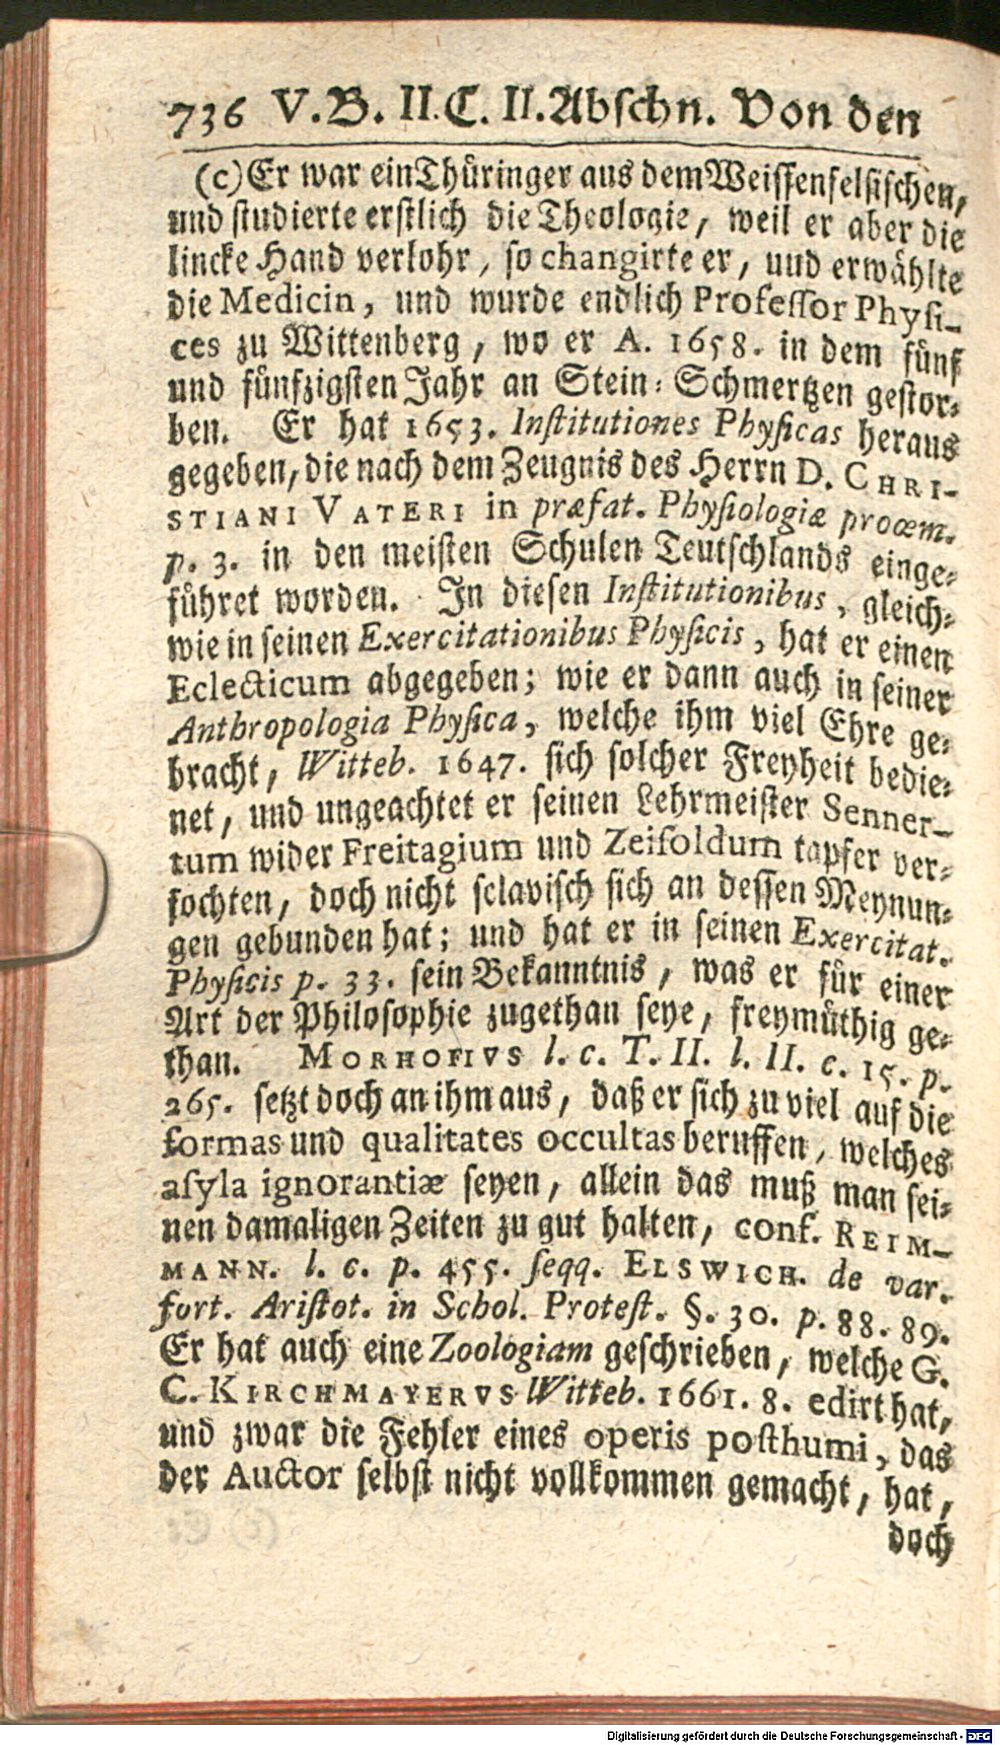 736 V. B. II. C. II. Abschn. Von den
(c) Er war ein Thüringer aus dem Weissenfelsischen,
und studierte erstlich die Theologie, weil er aber die
lincke Hand verlohr, so changirte er, und erwählte
die Medicin, und wurde endlich Professor Physi-
ces zu Wittenberg, wo er A. 1658. in dem fünf
und fünfzigsten Jahr an Stein-Schmertzen gestor-
ben. Er hat 1653. Institutiones Physicas heraus
gegeben, die nach dem Zeugnis des Herrn D. CHRI-
STIANI VATERI in præfat. Physiologiæ proœm.
p. 3. in den meisten Schulen Teutschlands einge-
führet worden. In diesen Institutionibus, gleich-
wie in seinen Exercitationibus Physicis, hat er einen
Eclecticum abgegeben; wie er dann auch in seiner
Anthropologia Physica, welche ihm viel Ehre ge-
bracht, Witteb. 1647. sich solcher Freyheit bedie-
net, und ungeachtet er seinen Lehrmeister Senner-
tum wider Freitagium und Zeisoldum tapfer ver-
fochten, doch nicht sclavisch sich an dessen Meynun-
gen gebunden hat; und hat er in seinen Exercitat.
Physicis p. 33. sein Bekanntnis, was er für einer
Art der Philosophie zugethan seye, freymüthig ge-
than. MORHOFIVS l. c. T. II. l. II. c. 15. p.
265. setzt doch an ihm aus, daß er sich zu viel auf die
formas und qualitates occultas beruffen, welches
asyla ignorantiæ seyen, allein das muß man sei-
nen damaligen Zeiten zu gut halten, conf. REIM-
MANN. l. c. p. 455. seqq. ELSWICH. de var.
fort. Aristot. in Schol. Protest. §. 30. p. 88. 89.
Er hat auch eine Zoologiam geschrieben, welche G.
C. KIRCHMAYERVS Witteb. 1661. 8. edirt hat,
und zwar die Fehler eines operis posthumi, das
der Auctor selbst nicht vollkommen gemacht, hat,
doch
Digitalisierung gefördert durch die Deutsche Forschungsgemeinschaft - DFG